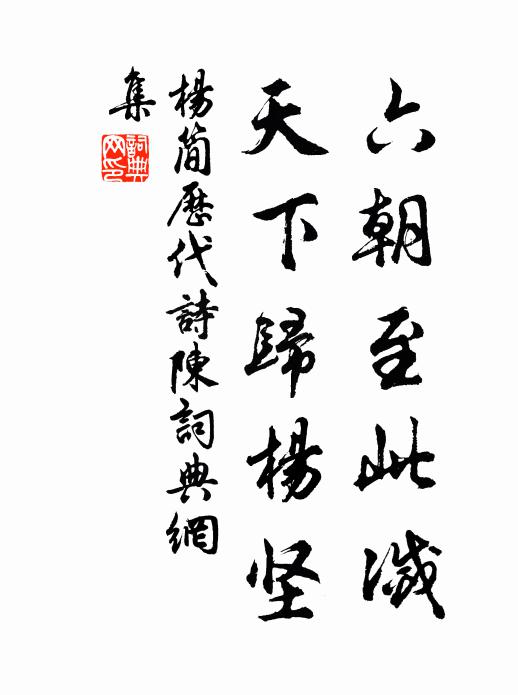 六朝至此滅
天下歸楊坚
楊簡歷代詩陳詞典網
集
詞典
网印